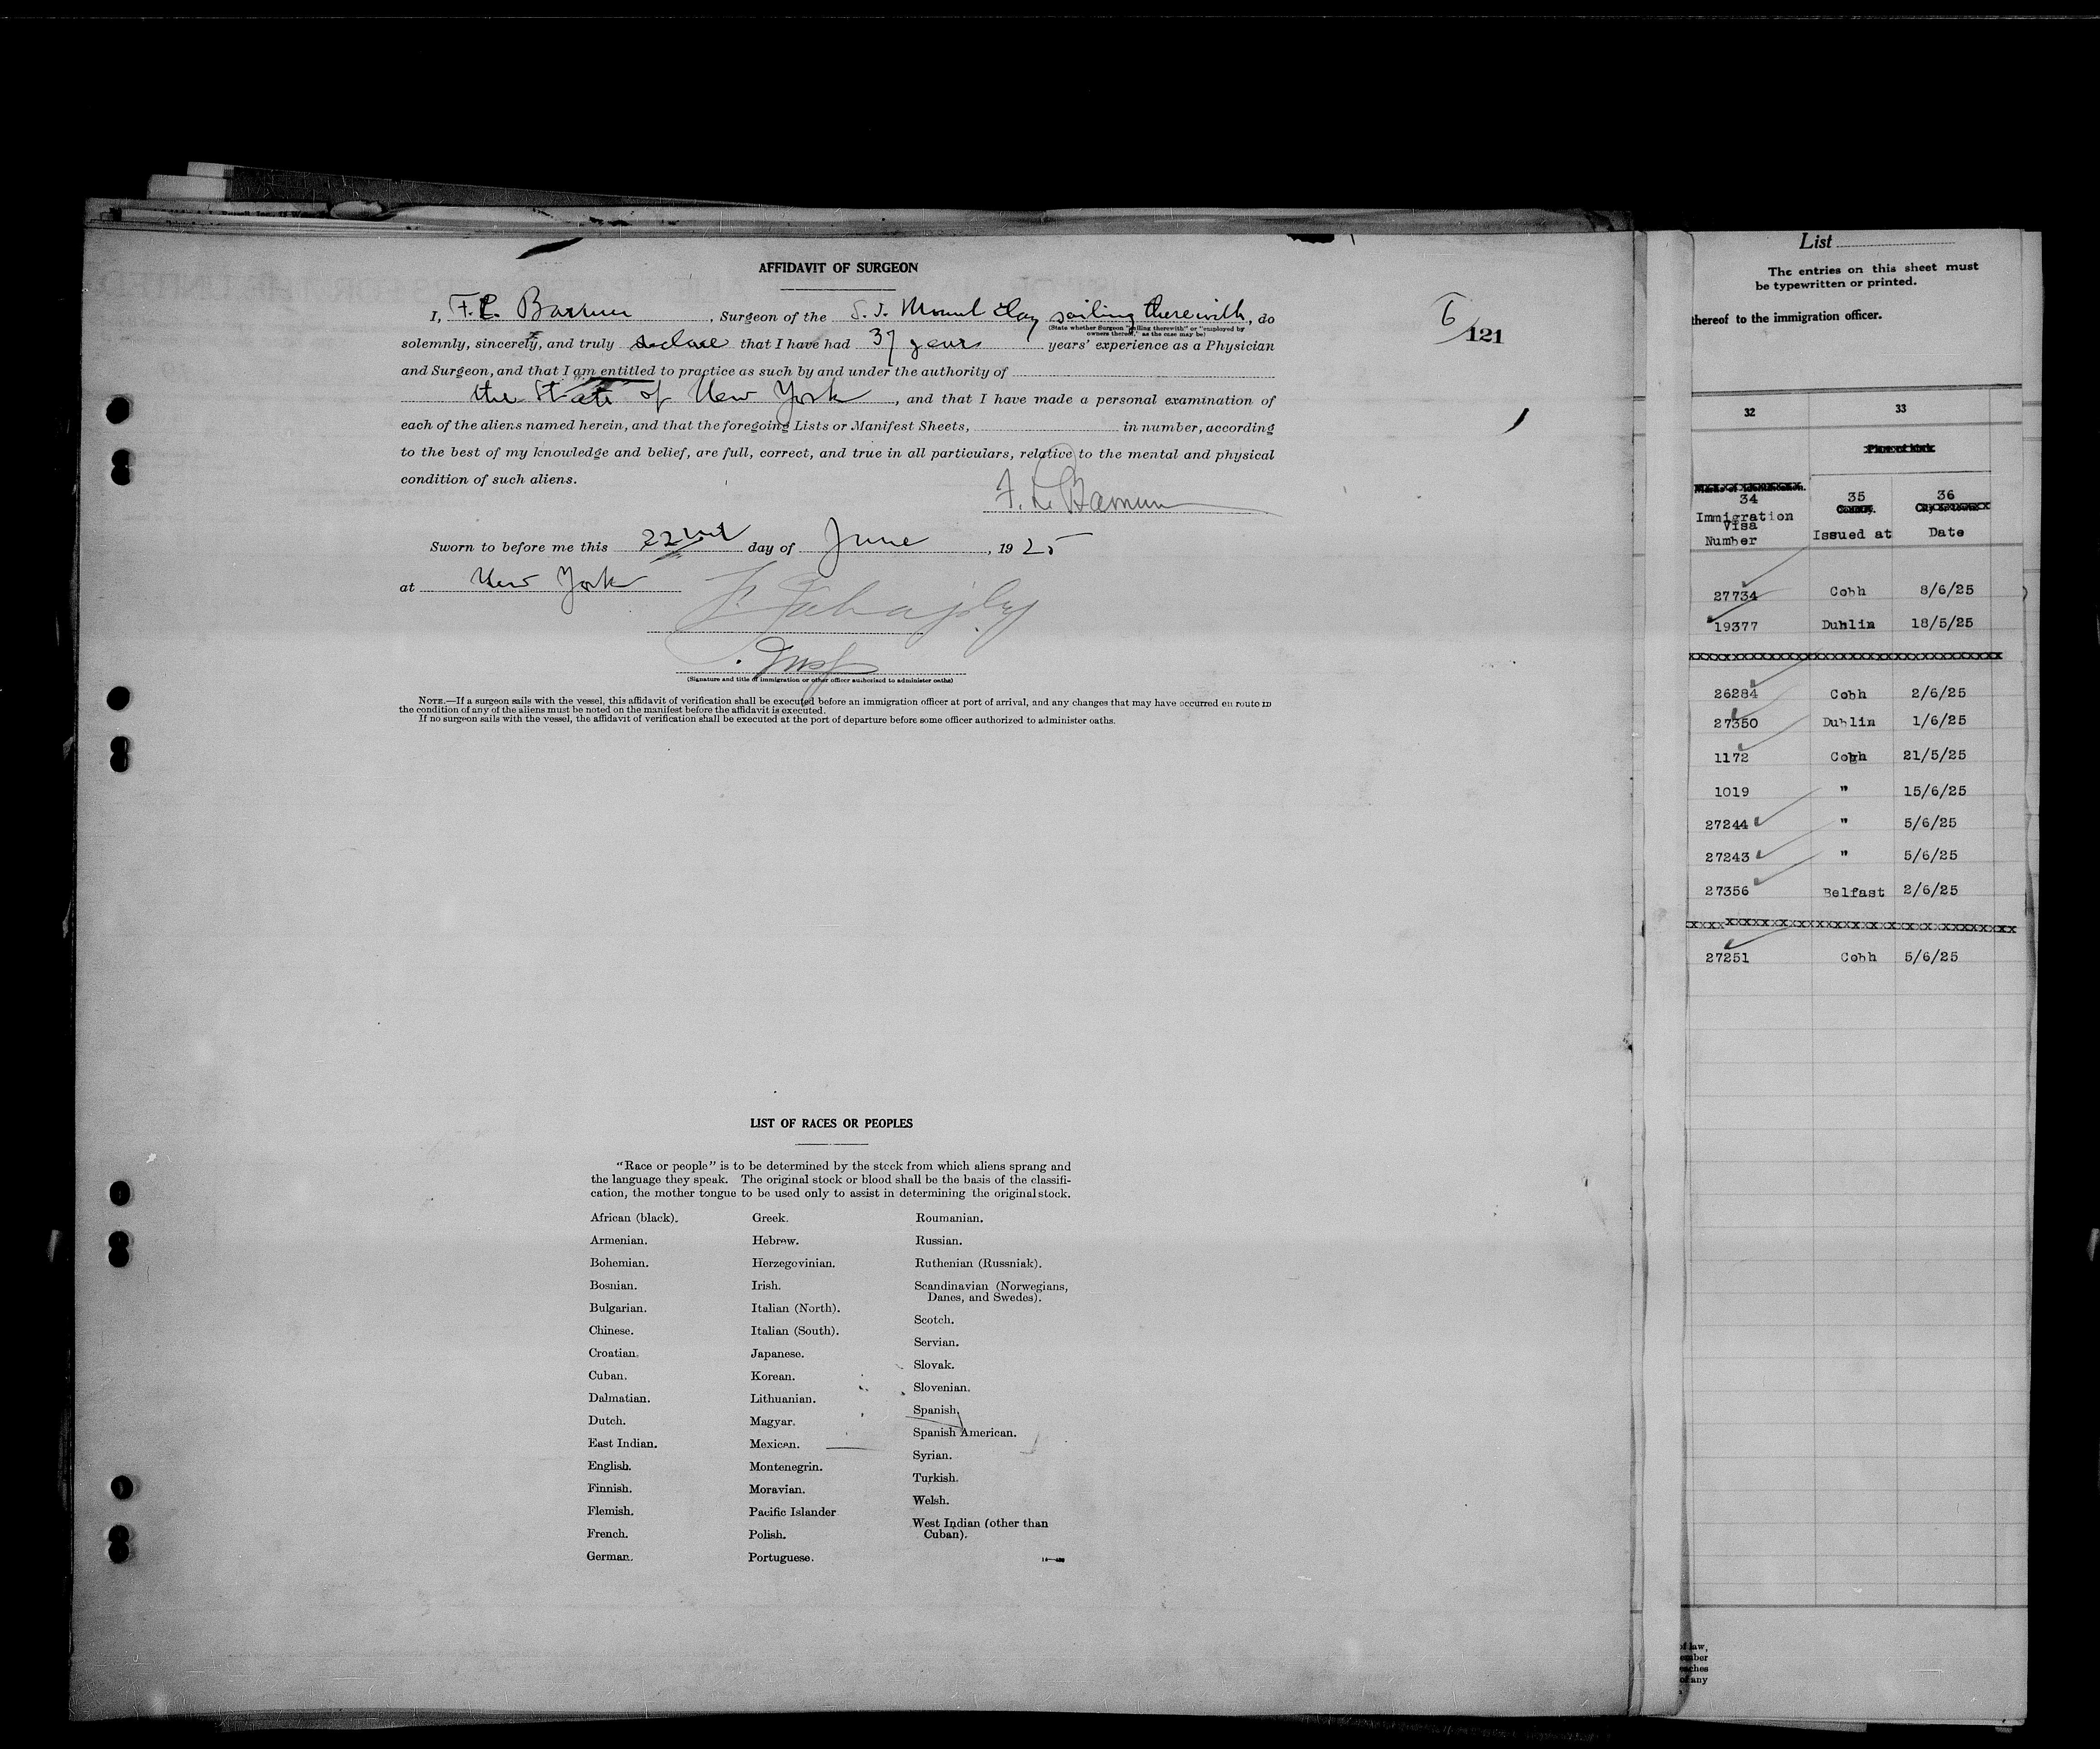 AFFIDAVIT OF SURGEON
I, F. L. Barnum, Surgeon of the S. S. Mount Clay sailing therewith, do
(State whether Surgeon "sailing therewith" or "employed by
owners thereof," as the case may be)
solemnly, sincerely, and truly declare that I have had 37 years years' experience as a Physician
and Surgeon, and that I am entitled to practice as such by and under the authority of
the State of New York, and that I have made a personal examination of
each of the aliens named herein, and that the foregoing Lists or Manifest Sheets, in number, according
to the best of my knowledge and belief, are full, correct, and true in all particulars, relative to the mental and physical
condition of such aliens.
F. L. Barnum
Sworn to before me this 22nd day of June, 1925
at New York
Insp
(Signature and title of immigration or other officer authorized to administer oaths)
NOTE.—If a surgeon sails with the vessel, this affidavit of verification shall be executed before an immigration officer at port of arrival, and any changes that may have occurred en route in
the condition of any of the aliens must be noted on the manifest before the affidavit is executed.
If no surgeon sails with the vessel, the affidavit of verification shall be executed at the port of departure before some officer authorized to administer oaths.
6/121
LIST OF RACES OR PEOPLES
"Race or people" is to be determined by the stock from which aliens sprang and
the language they speak. The original stock or blood shall be the basis of the classifi-
cation, the mother tongue to be used only to assist in determining the original stock.
African (black).
Armenian.
Bohemian.
Bosnian.
Bulgarian.
Chinese.
Croatian.
Cuban.
Dalmatian.
Dutch.
East Indian.
English.
Finnish.
Flemish.
French.
German.
Greek.
Hebrew.
Herzegovinian.
Irish.
Italian (North).
Italian (South).
Japanese.
Korean.
Lithuanian.
Magyar.
Mexican.
Montenegrin.
Moravian.
Pacific Islander
Polish.
Portuguese.
Roumanian.
Russian.
Ruthenian (Russniak).
Scandinavian (Norwegians,
Danes, and Swedes).
Scotch.
Servian.
Slovak.
Slovenian.
Spanish.
Spanish American.
Syrian.
Turkish.
Welsh.
West Indian (other than
Cuban).
List
The entries on this sheet must
be typewritten or printed.
thereof to the immigration officer.
32 33
Place of birth
34 35 36
Immigration
Visa
Number Issued at Date
27734 Cobh 8/6/25
19377 Dublin 18/5/25
xxxxxxxxxxxxxxxxxxxxxxxxxxxxxxxxxxx
26284 Cobh 2/6/25
27350 Dublin 1/6/25
1172 Cobh 21/5/25
1019 " 15/6/25
27244 " 5/6/25
27243 " 5/6/25
27356 Belfast 2/6/25
xxxxxxxxxxxxxxxxxxxxxxxxxxxxxxxxxxx
27251 Cobh 5/6/25
of law,
ember
eaches
of any